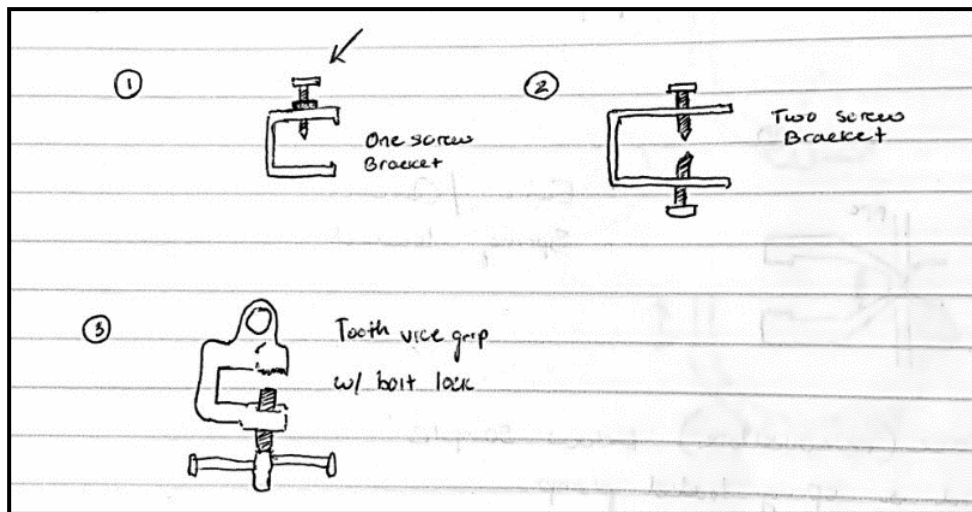 1
One screw
Bracket
2
Two screw
Bracket
3
Tooth vice grip
w/ bolt lock